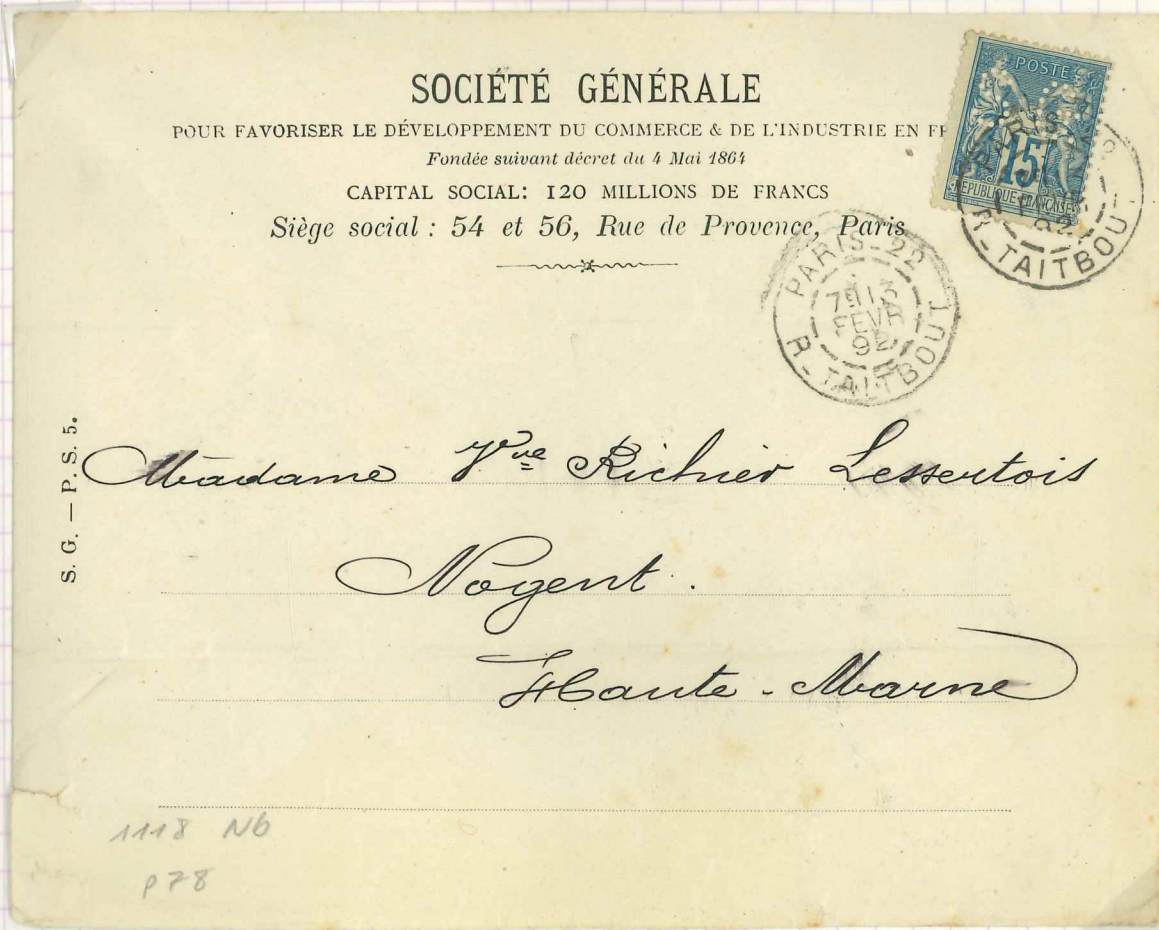 SOCIÉTÉ GÉNÉRALE
POUR FAVORISER LE DÉVELOPPEMENT DU COMMERCE & DE L'INDUSTRIE EN FR
Fondée suivant décret du 4 Mai 1864
CAPITAL SOCIAL: 120 MILLIONS DE FRANCS
Siège social : 54 et 56, Rue de Provence, Paris
POSTE
15
RÉPUBLIQUE FRANÇAISE
92
R-TAITBOU
PARIS-22
FEVR
92
R-TAITBOUT
S. G. — P. S. 5.
Madame Vve Richier Lessertois
Nogent.
Haute-Marne
1118 Nb
p78